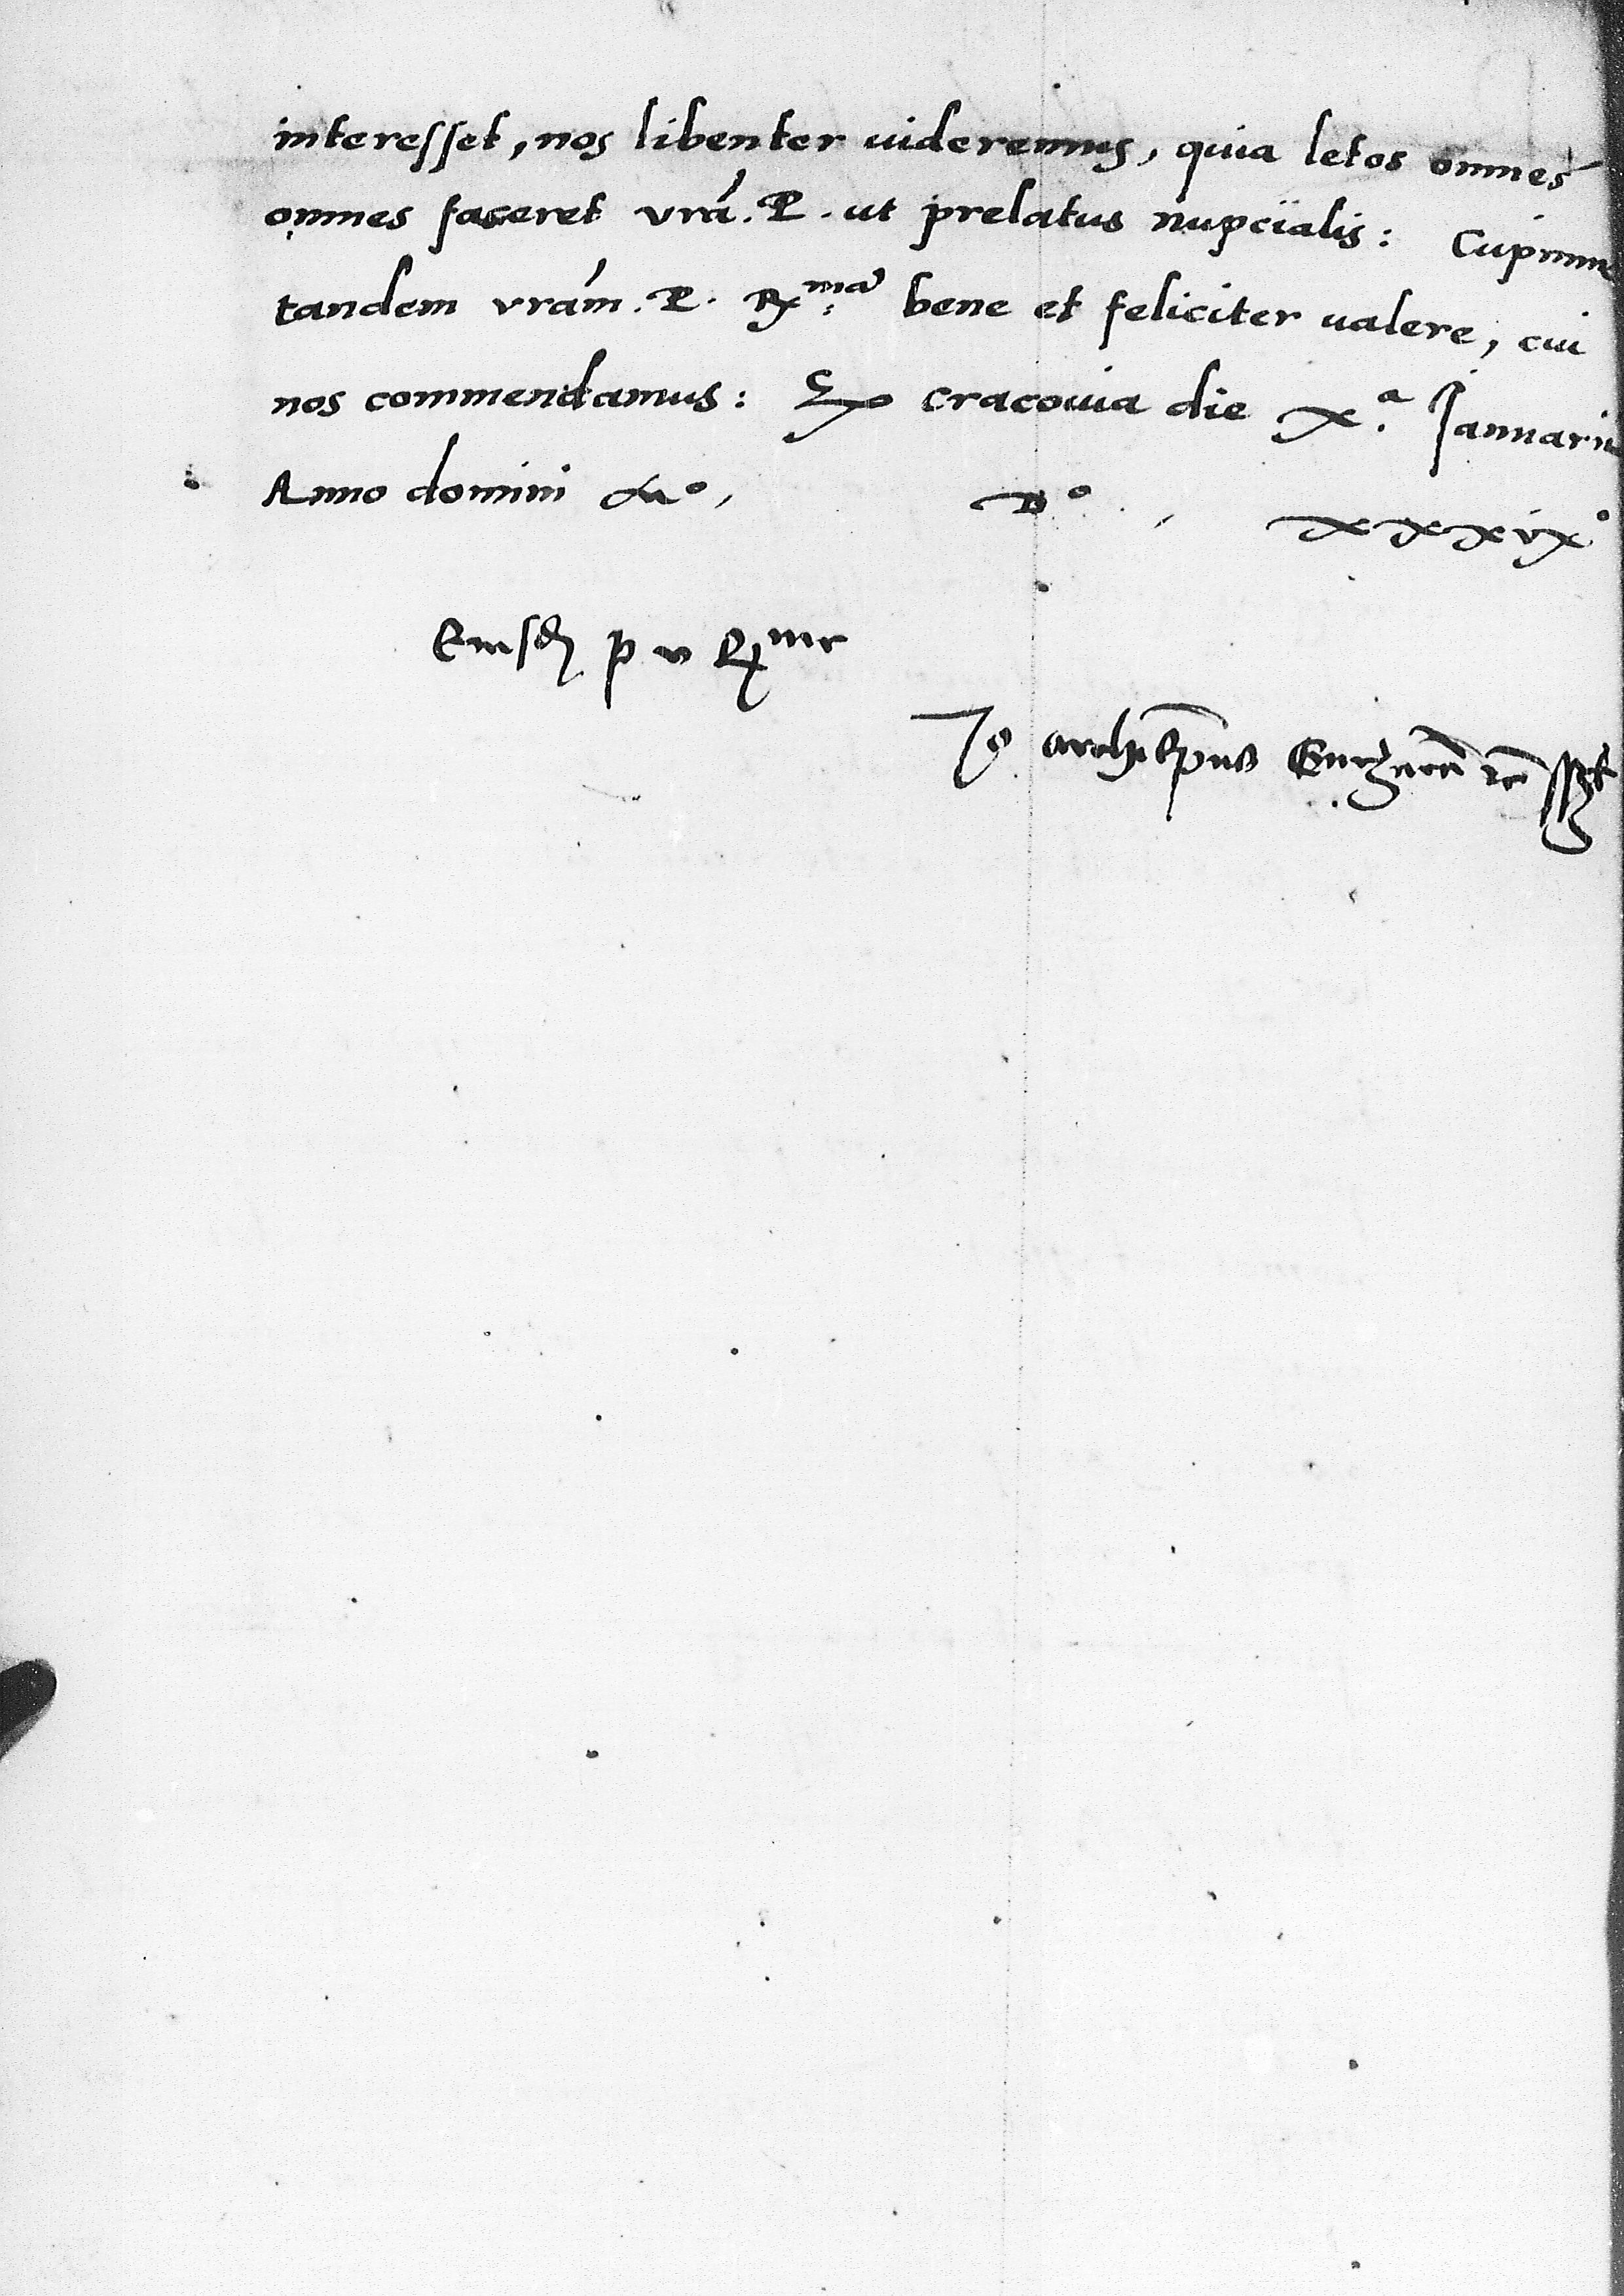 interesset, nos libenter uideremus, quia letos omnes
omnes faceret vrã. P. ut prelatus nupcialis: Cupimus
tandem vram. P. R.ma bene et feliciter ualere, cui
nos commendamus: Ex cracouia die x.a Januarii
Anno domini Mo, Do, xxxixo
Eiusd p v Rme
Jo archiepus Gneznen